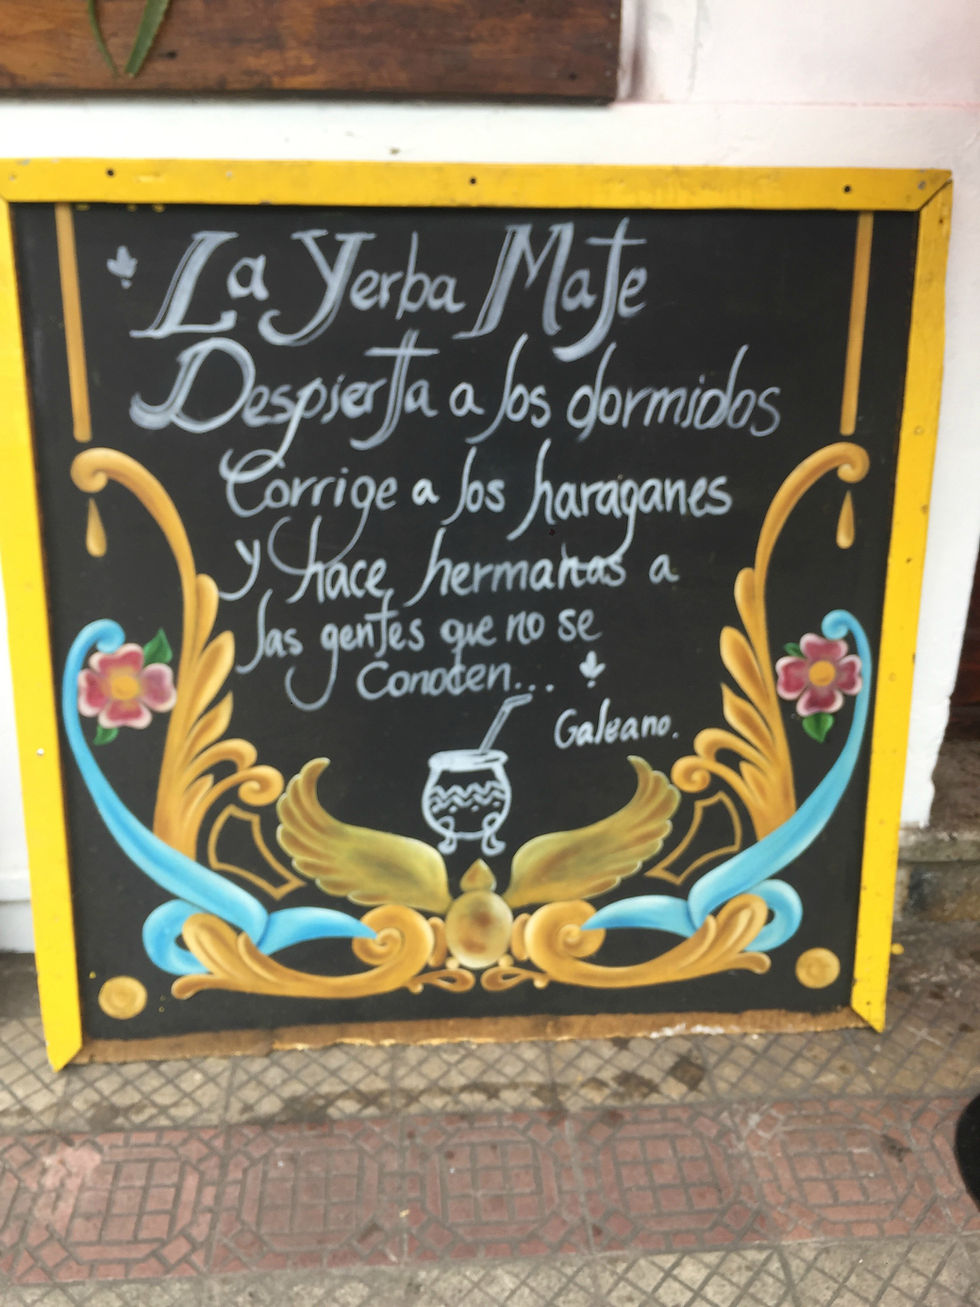 La Yerba Mate
Despierta a los dormidos
Corrige a los haraganes
y hace hermanas a
las gentes que no se
Conocen...
Galeano.